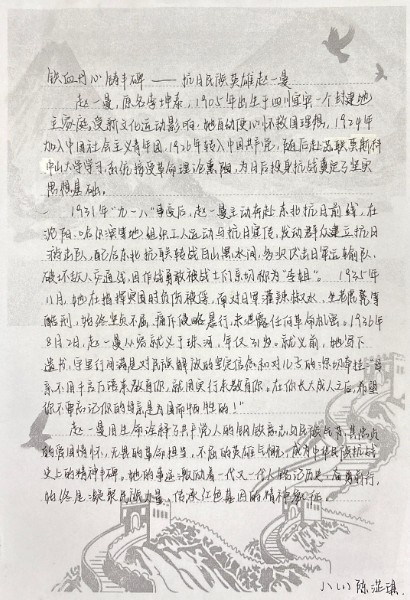 铁血丹心铸丰碑——抗日民族英雄赵一曼
赵一曼,原名李坤泰,1905年出生于四川宜宾一个封建地
主家庭,受新文化运动影响,她自幼便心怀救国理想,1924年
加入中国社会主义青年团,1926年转入中国共产党,随后赴莫斯科
中山大学学习,系统接受革命理论熏陶,为日后投身抗战奠定了坚实
思想基础。
1931年“九一八”事变后,赵一曼主动奔赴东北抗日前线,在
沈阳、哈尔滨等地组织工人运动与抗日宣传,发动群众建立抗日
游击队,随后东北抗联转战白山黑水间,多次伏击日军运输队,
破坏敌人交通线,因作战勇敢被战士们亲切称为“李姐”。1935年
11月,她在指挥突围时负伤被俘,面对日军灌辣椒水、坐老虎凳等
酷刑,始终坚贞不屈,痛斥侵略暴行,未泄露任何革命机密。1936年
8月2日,赵一曼从容就义于珠河,年仅31岁。就义前,她写下
遗书,字里行间满是对民族解放的坚定信念和对儿子的深切牵挂:“母
亲不用千言万语来教育你,就用实行来教育你。在你长大成人之后,希望
你不要忘记你的母亲是为国而牺牲的!”
赵一曼用生命诠释了共产党人的钢铁意志与民族气节,其
的家国情怀、无畏的革命担当、不屈的英雄气概,成为中华民族抗战
史上的精神丰碑。她的事迹激励着一代又一代人铭记历史、奋勇前行,
始终是凝聚民族力量、传承红色基因的精神象征。
八(1)陈